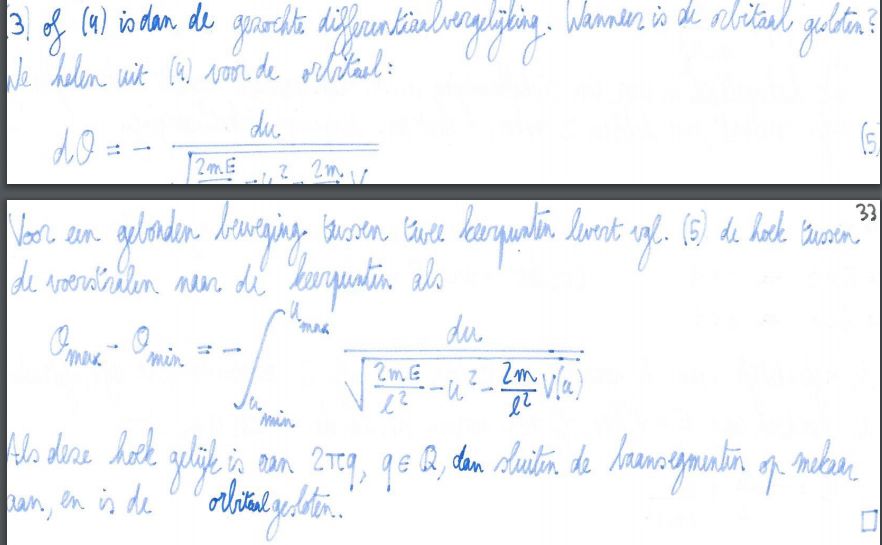 (3) of (4) is dan de gezochte differentiaalvergelijking. Wanneer is de orbitaal gesloten?
We halen uit (4) voor de orbitaal:
dθ = - du / √(2mE -u² - 2m V (5)
33
Voor een gebonden beweging tussen twee keerpunten levert vgl. (5) de hoek tussen
de voerstralen naar de keerpunten als
θmax - θmin = - ∫_{u min}^{u max} du / √(2mE/ℓ² - u² - 2m/ℓ² V(u))
Als deze hoek gelijk is aan 2πq, q ∈ Q, dan sluiten de baansegmenten op mekaar
aan, en is de orbitaal gesloten. □